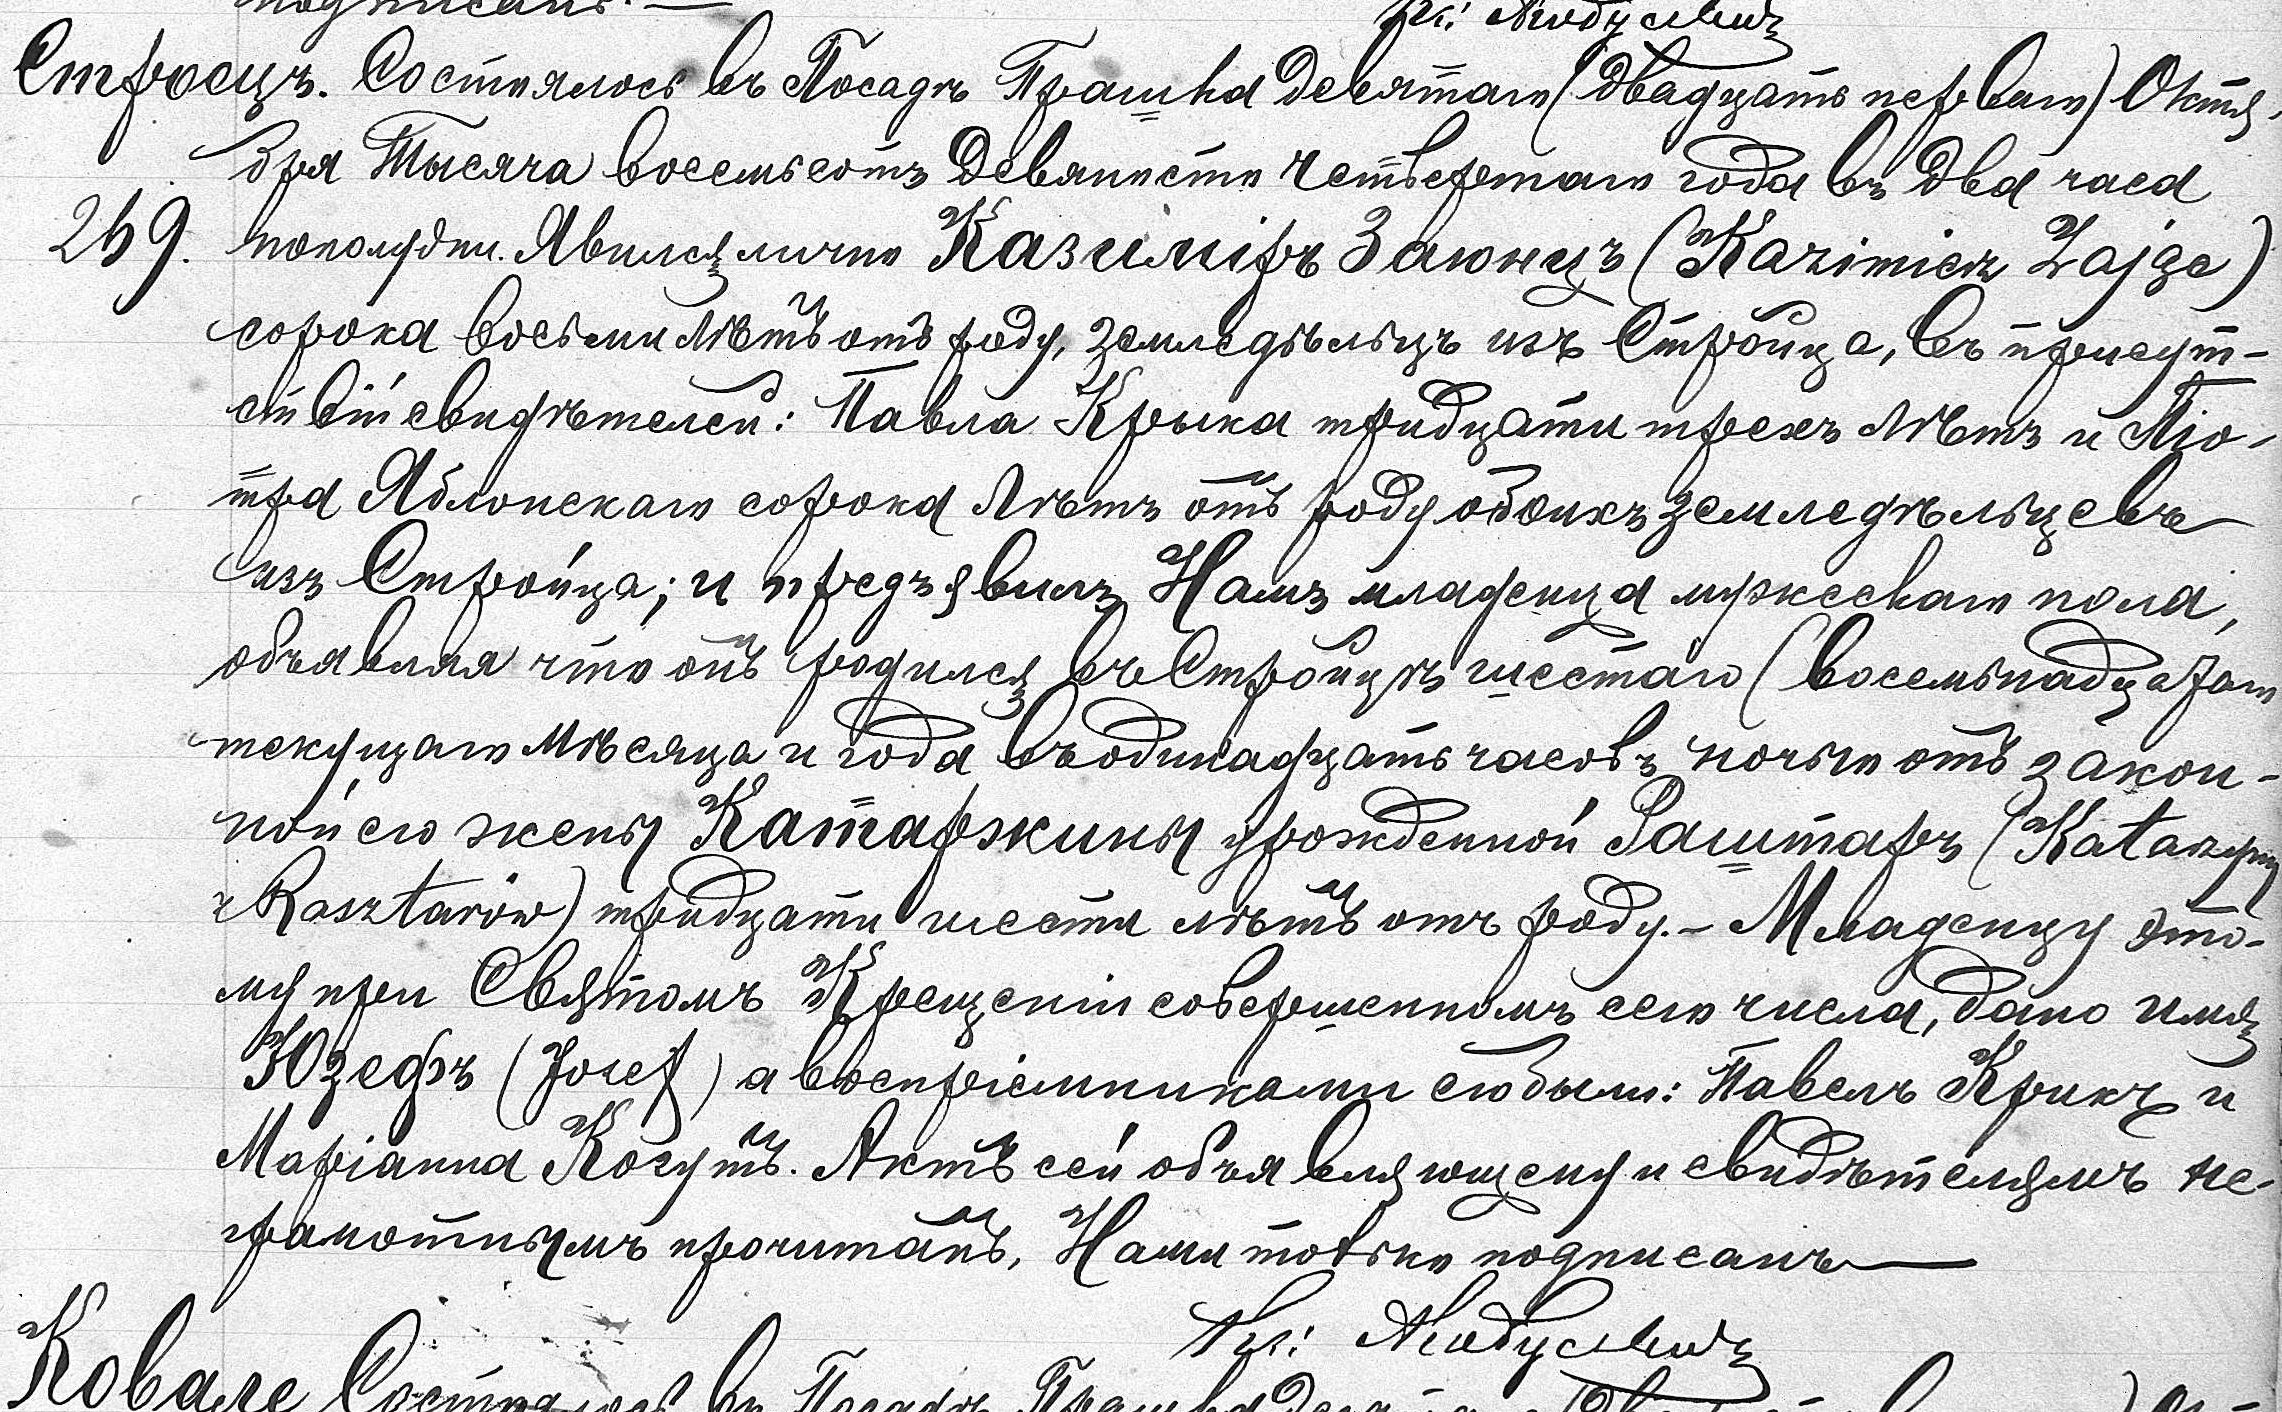 подписанъ. —
Стройцъ. Состоялось въ Посадѣ Прашка девятаго (двадцать перваго) Октя-
бря Тысяча восемьсотъ девяносто четвертаго года въ два часа
249. пополудни. Явился лично Казимiръ Заіонцъ (Kazimierz Zając)
сорока восьми лѣтъ отъ роду, земледѣлецъ изъ Стройца, въ присут-
ствіи свидѣтелей: Павла Крыка тридцати трехъ лѣтъ и Піо-
тра Яблонскаго сорока лѣтъ отъ роду обоихъ земледѣльцевъ
изъ Стройца; и предъявилъ Намъ младенца мужескаго пола,
объявляя что онъ родился въ Стройцѣ шестаго (восемьнадцатаго
текущаго мѣсяца и года въ одинадцать часовъ ночью отъ закон-
ной его жены Катаржины урожденной Раштаръ (Katarzyny
z Rasztarów) тридцати шести лѣтъ отъ роду. – Младенцу это-
му при Святомъ Крещеніи совершенномъ сего числа, дано имя
Юзефъ (Józef) а воспріемниками его были: Павелъ Крикъ и
Маріанна Когутъ. Актъ сей объявляющему и свидѣтелямъ не-
грамотнымъ прочитанъ, Нами только подписанъ —
Ковале Состоялось въ Посадѣ Прашка